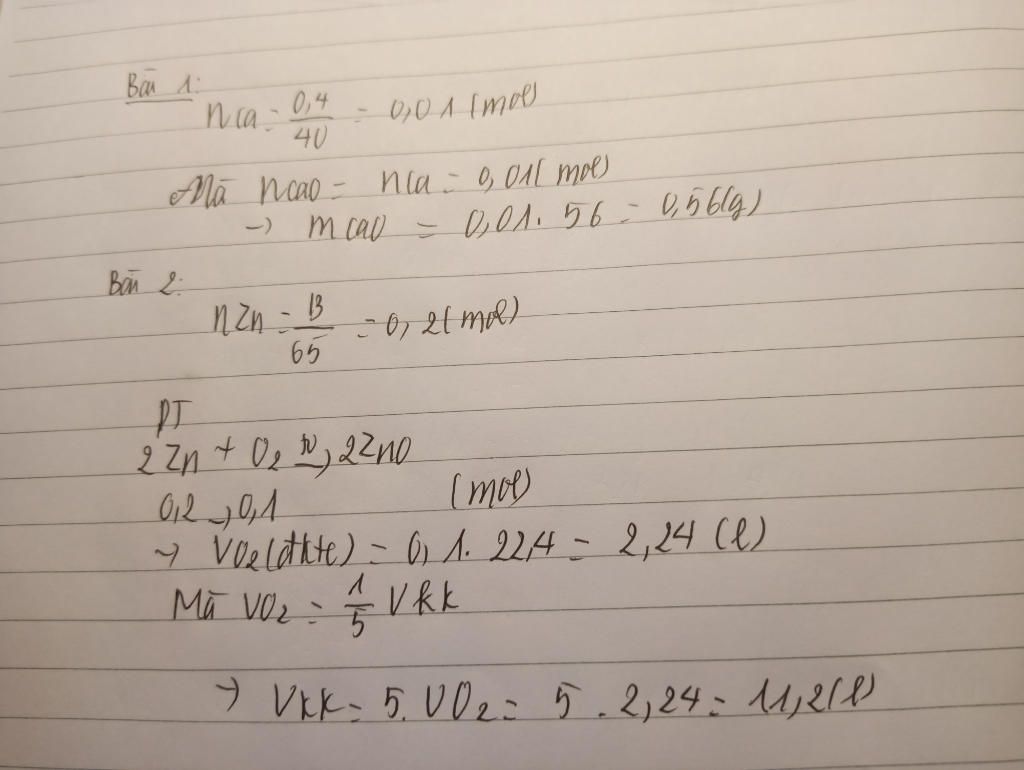 Bài 1:
nCa = 0,4/40 = 0,01 (mol)
Mà nCaO = nCa = 0,01 (mol)
→ mCaO = 0,01 . 56 = 0,56 (g)
Bài 2:
nZn = 13/65 = 0,2 (mol)
PT
2Zn + O₂ t⁰→ 2ZnO
0,2 → 0,1 (mol)
→ VO₂ (đktc) = 0,1 . 22,4 = 2,24 (l)
Mà VO₂ = 1/5 Vkk
→ Vkk = 5 . VO₂ = 5 . 2,24 = 11,2 (l)